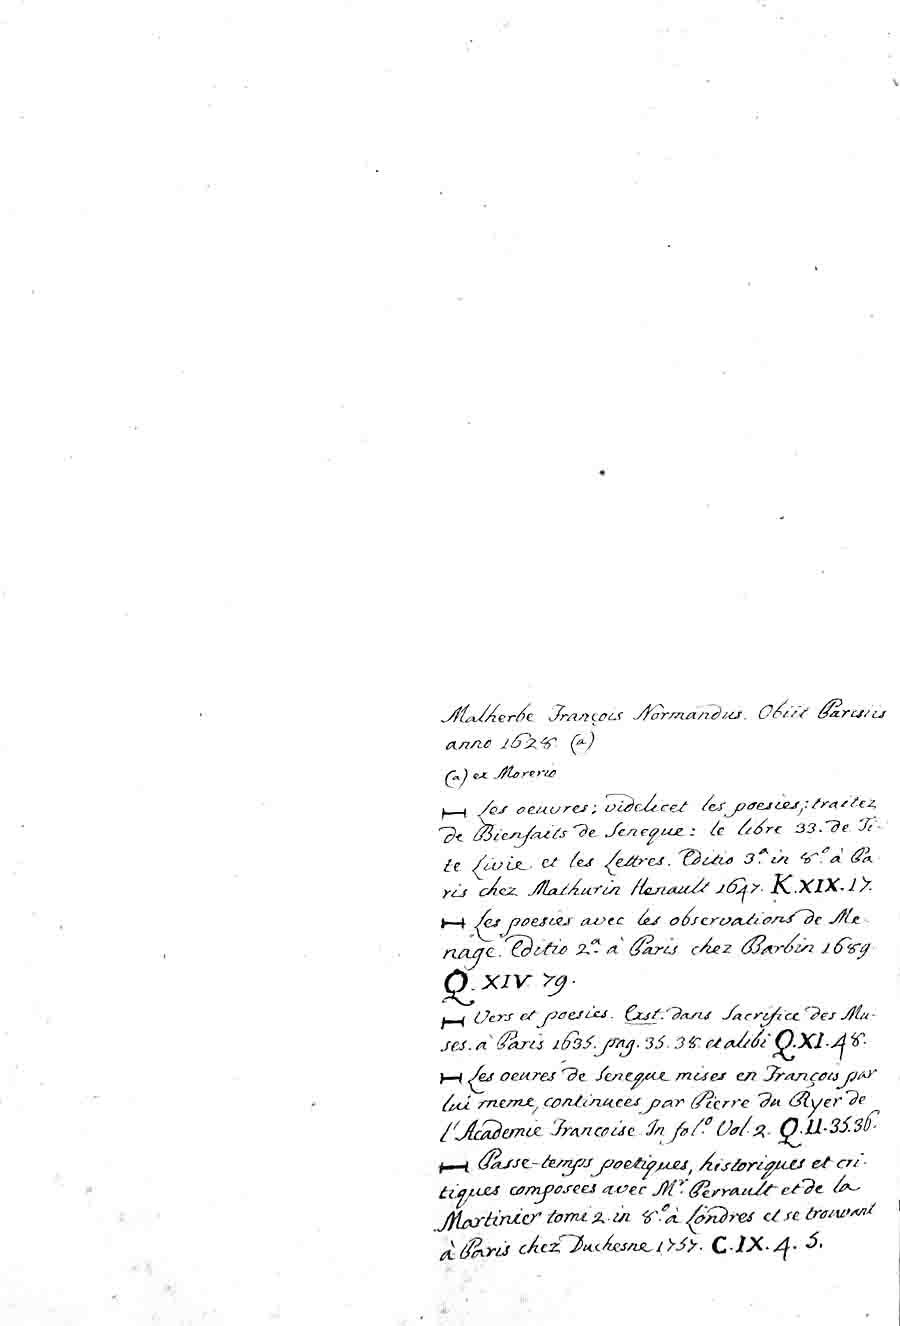 Malherbe François Normandus. Obiit Parisiis
anno 1628 (a)
(a) ex Morerio
Les oeuvres; videlicet les poesies; traitez
de Bienfaits de Seneque: le libre 33. de Ti-
te Livie et les Lettres. Editio 3.ª in 8.º à Pa
ris chez Mathurin Henault 1647. K.XIX.17.
Les poesies avec les observations de Me
nage. Editio 2.ª à Paris chez Barbin 1689
Q.XIV 79.
Vers et poesies. Exst. dans Sacrifice des Mu-
ses. à Paris 1635. pag. 35. 38 et alibi Q.XI.48.
Les oeures de Seneque mises en François par
lui meme, continuees par Pierre du Ryer de
l'Academie Francoise In fol.º Vol 2. Q.II.35.36.
Passe-temps poetiques, historiques et cri-
tiques composees avec M.r Perrault et de la
Martinier tomi 2 in 8.º à Londres et se trouvant
à Paris chez Duchesne 1757. C.IX.4.5.